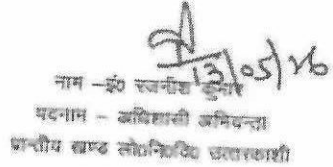 13/05/26
नाम – इं० रजनीश कुमार
पदनाम – अधिशासी अभियन्ता
प्रान्तीय खण्ड लो०नि०वि० उत्तरकाशी